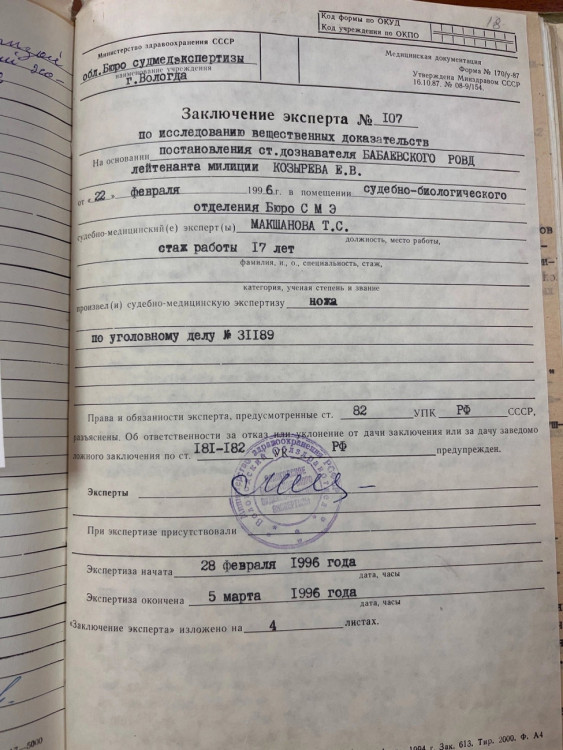 18
Код формы по ОКУД
Код учреждения по ОКПО
Министерство здравоохранения СССР
обл.Бюро судмедэкспертизы
наименование учреждения
г.Вологда
Медицинская документация
Форма № 170/у-87
Утверждена Минздравом СССР
16.10.87. № 08-9/154.
Заключение эксперта № 107
по исследованию вещественных доказательств
На основании постановления ст.дознавателя БАБАЕВСКОГО РОВД
лейтенанта милиции КОЗЫРЕВА Е.В.
от «22» февраля 1996г. в помещении судебно-биологического
отделения Бюро С М Э
судебно-медицинский(е) эксперт(ы) МАКШАНОВА Т.С.
должность, место работы,
стаж работы 17 лет
фамилия, и., о., специальность, стаж,
категория, ученая степень и звание
произвел(и) судебно-медицинскую экспертизу ножа
по уголовному делу № 31189
Права и обязанности эксперта, предусмотренные ст. 82 УПК РФ СССР,
разъяснены. Об ответственности за отказ или уклонение от дачи заключения или за дачу заведомо
ложного заключения по ст. 181-182 УК РФ предупрежден.
Эксперты
При экспертизе присутствовали
Экспертиза начата 28 февраля 1996 года
дата, часы
Экспертиза окончена 5 марта 1996 года
дата, часы
«Заключение эксперта» изложено на 4 листах.
1994 г. Зак. 613. Тир. 2000. Ф. А4